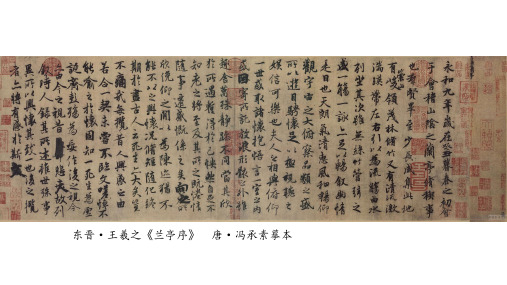 永和九年歲在癸丑暮春之初會
于會稽山陰之蘭亭脩禊事
也群賢畢至少長咸集此地
有崇山峻領茂林脩竹又有清流激
湍暎帶左右引以為流觴曲水
列坐其次雖無絲竹管弦之
盛一觴一詠亦足以暢叙幽情
是日也天朗氣清惠風和暢仰
觀宇宙之大俯察品類之盛
所以遊目騁懷足以極視聽之
娛信可樂也夫人之相與俯仰
一世或取諸懷抱悟言一室之內
或因寄所託放浪形骸之外雖
趣舍萬殊靜躁不同當其欣
於所遇蹔得於己怏然自足不
知老之將至及其所之既惓情
隨事遷感慨係之矣向之所
欣俛仰之閒以為陳迹猶不
能不以之興懷況脩短隨化終
期於盡古人云死生亦大矣豈
不痛哉每攬昔人興感之由
若合一契未嘗不臨文嗟悼不
能喻之於懷固知一死生為虛
誕齊彭殤為妄作後之視今
亦由今之視昔悲夫故列
敘時人錄其所述雖世殊事
異所以興懷其致一也後之攬
者亦將有感於斯文
东晋·王羲之《兰亭序》 唐·冯承素摹本